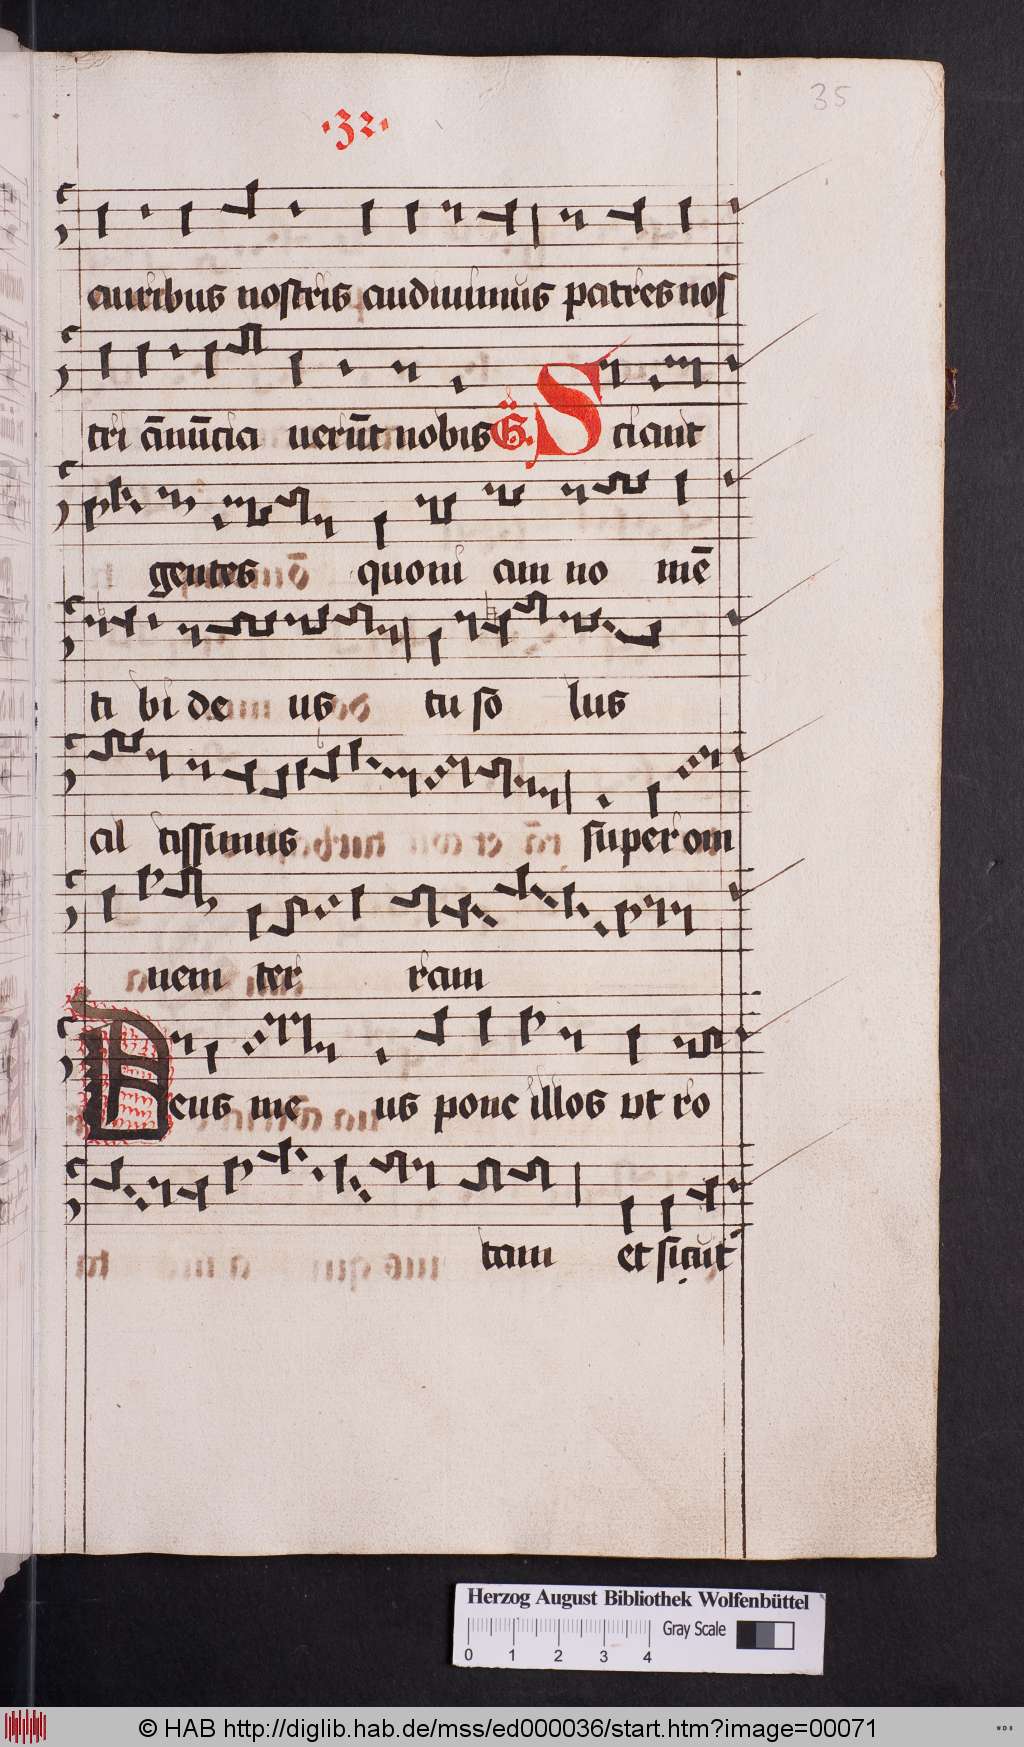 35
·32·
auribus nostris audiuimus patres nos
tri ānūcia uerūt nobis G̈. Sciant
gentes quoni am no mē
ti bi de us tu so lus
al tissimus super om
nem ter ram
Deus me us pone illos vt ro
tam et sicut
Herzog August Bibliothek Wolfenbüttel
0 1 2 3 4 Gray Scale
© HAB http://diglib.hab.de/mss/ed000036/start.htm?image=00071